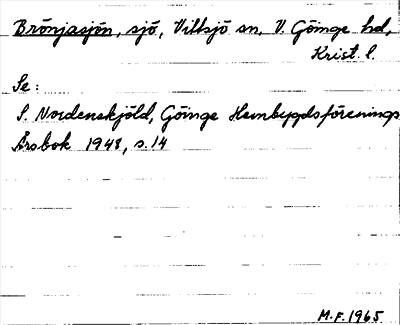 Brönjasjön, sjö, Vittsjö sn, V. Göinge hd,
Krist. l.
Se:
S. Nordenskjöld, Göinge Hembygdsförenings
Årsbok 1948, s.14
M.F.1965